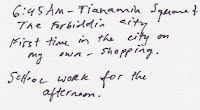 6:45 AM - Tiananmin Square &
The Forbiddin city
First time in the city on
my own - shopping.
School work for the
afternoon.